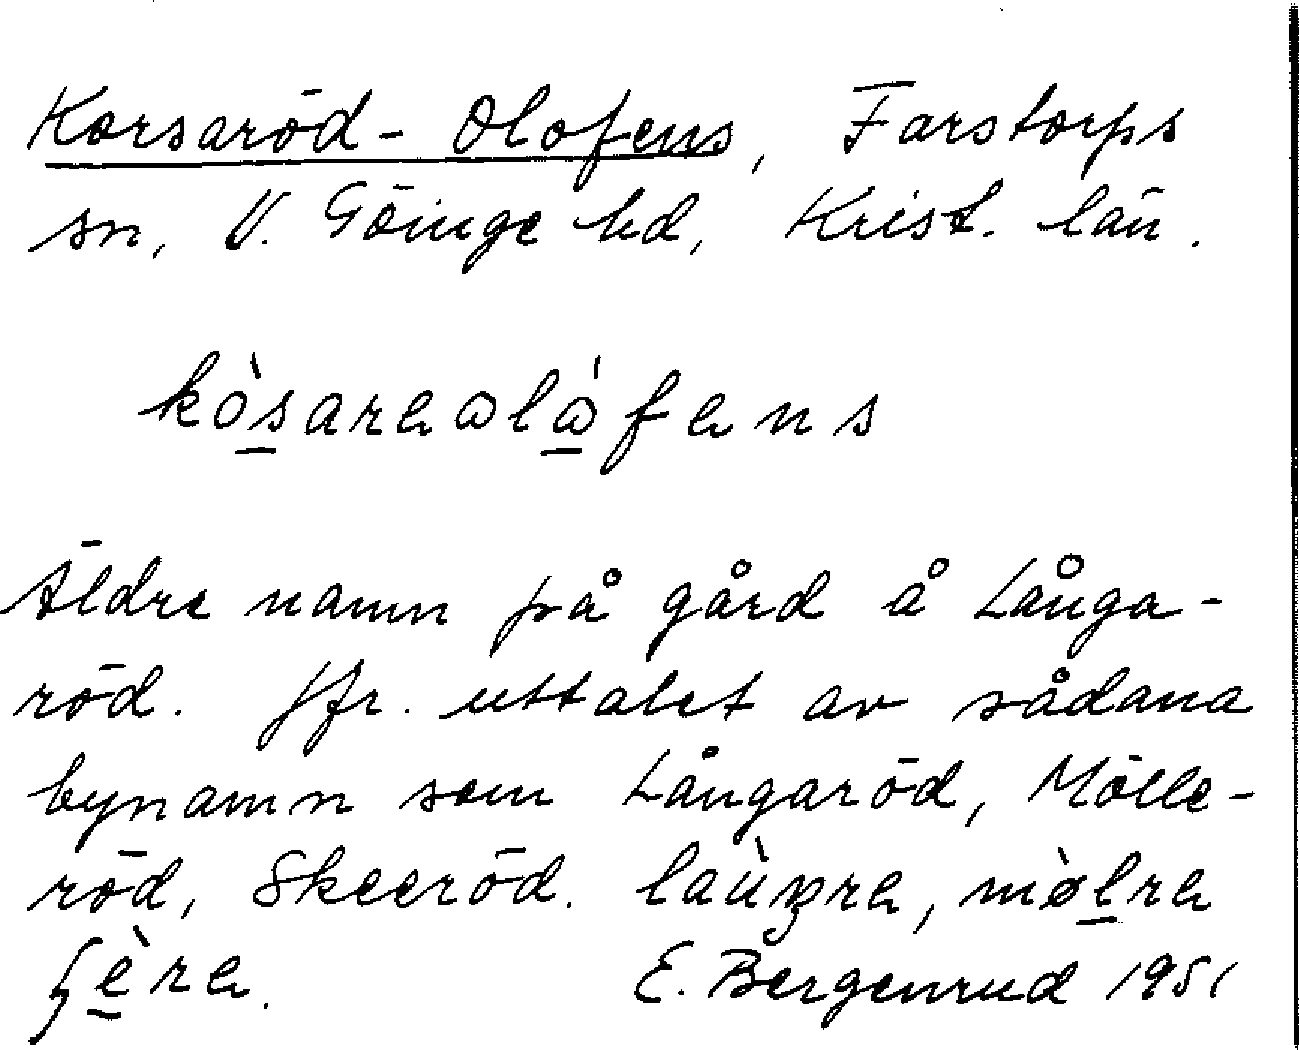 Korsaröd-Olofens, Farstorps
sn, V. Göinge hd, Krist. län.
kòsareωlώfens
Äldre namn på gård å Långa-
röd. Jfr. uttalet av sådana
bynamn som Långaröd, Mölle-
röd, Skeeröd. laùŋre, mølre
E. Bergenrud 1951